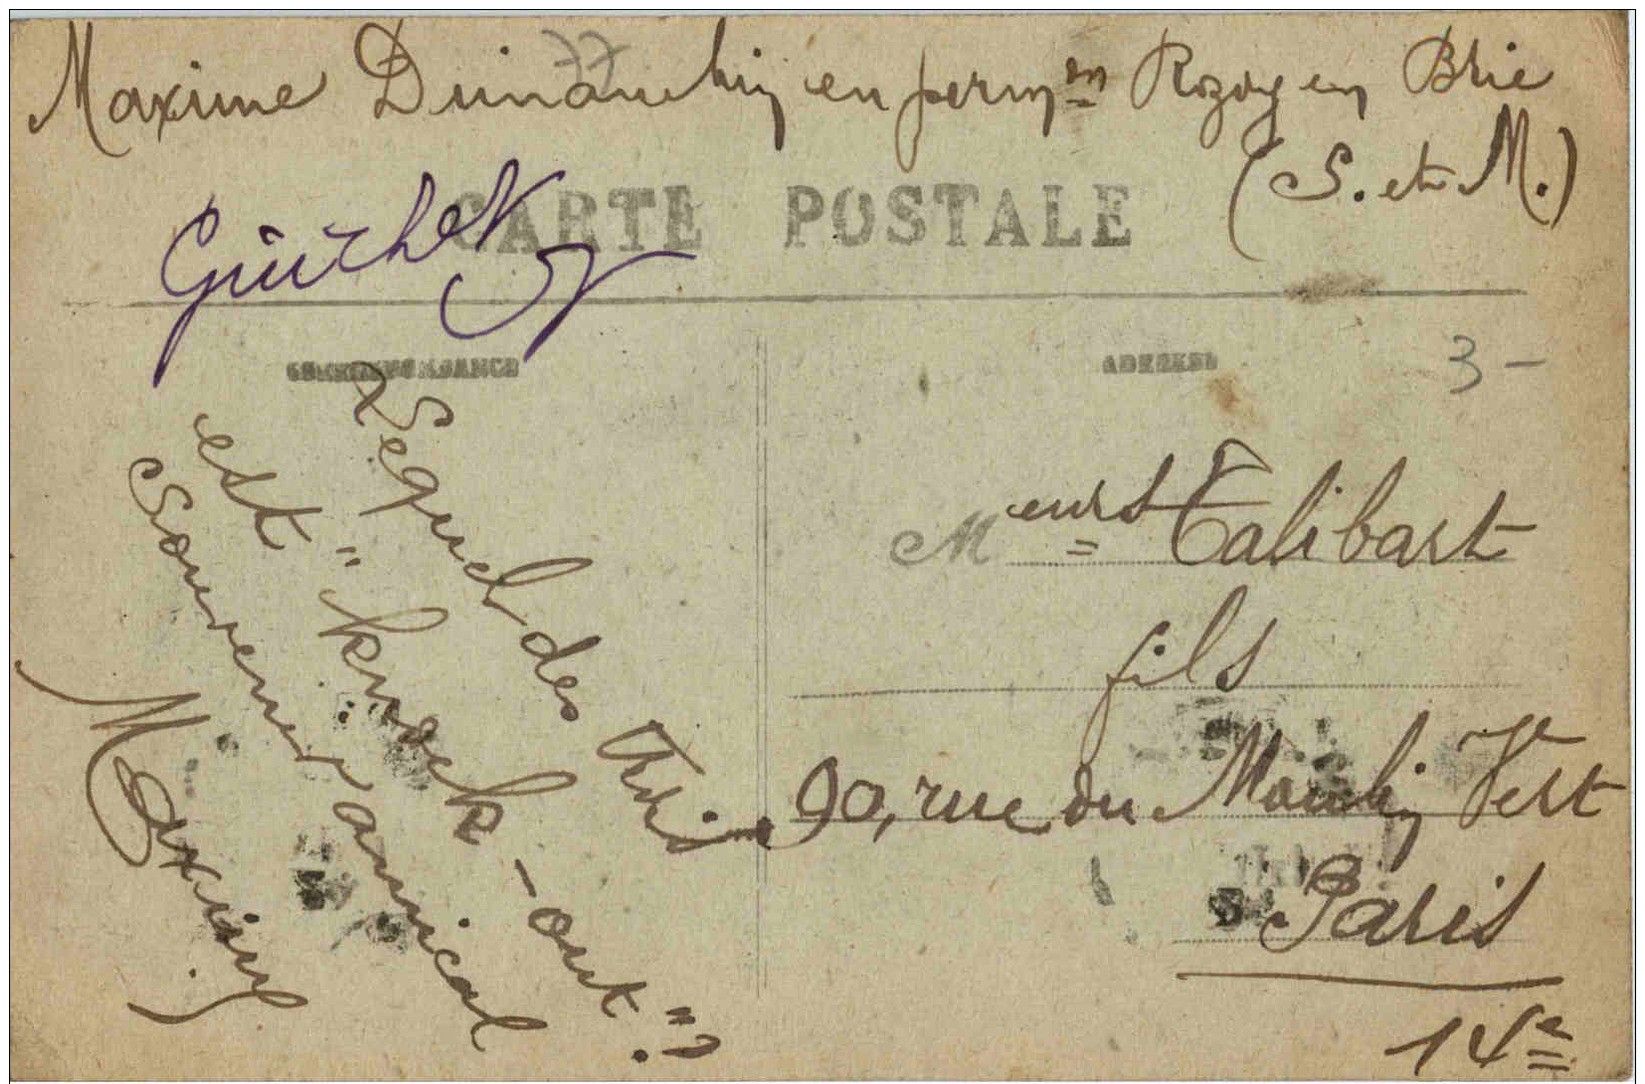 Maxime en perm on Rozoy en Brie
(S. et M.)
77
Guichet
CARTE POSTALE
CORRESPONDANCE
ADRESSE
3 -
Lequel des trois
est "knock-out"?
Souvenir amical
Maxime
Meurs Talibart
fils
90, rue du Moulin Vert
Paris
14e